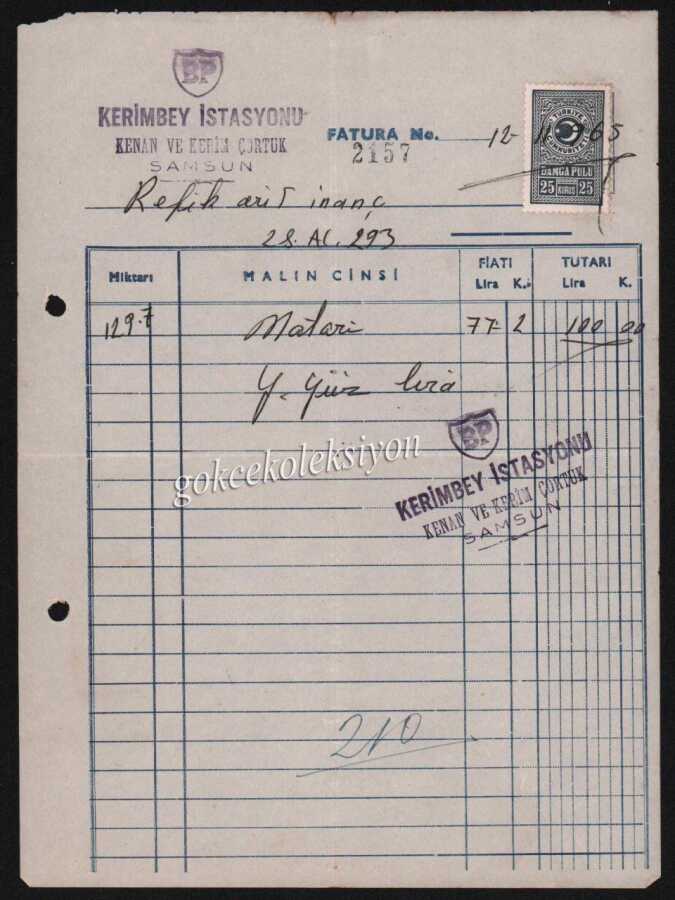 BP
KERİMBEY İSTASYONU
KENAN VE KERİM ÇORTUK
SAMSUN
FATURA No.
2157
12-11-965
TÜRKİYE CUMHURİYETİ
DAMGA PULU
25 KURUŞ 25
Refik inanç
28. AC. 293
Miktarı MALIN CİNSİ FİATI TUTARI
Lira K. Lira K.
129.7 77 2 100 00
Y. Yüz lira
gokcekoleksiyon
BP
KERİMBEY İSTASYONU
KENAN VE KERİM ÇORTUK
SAMSUN
210